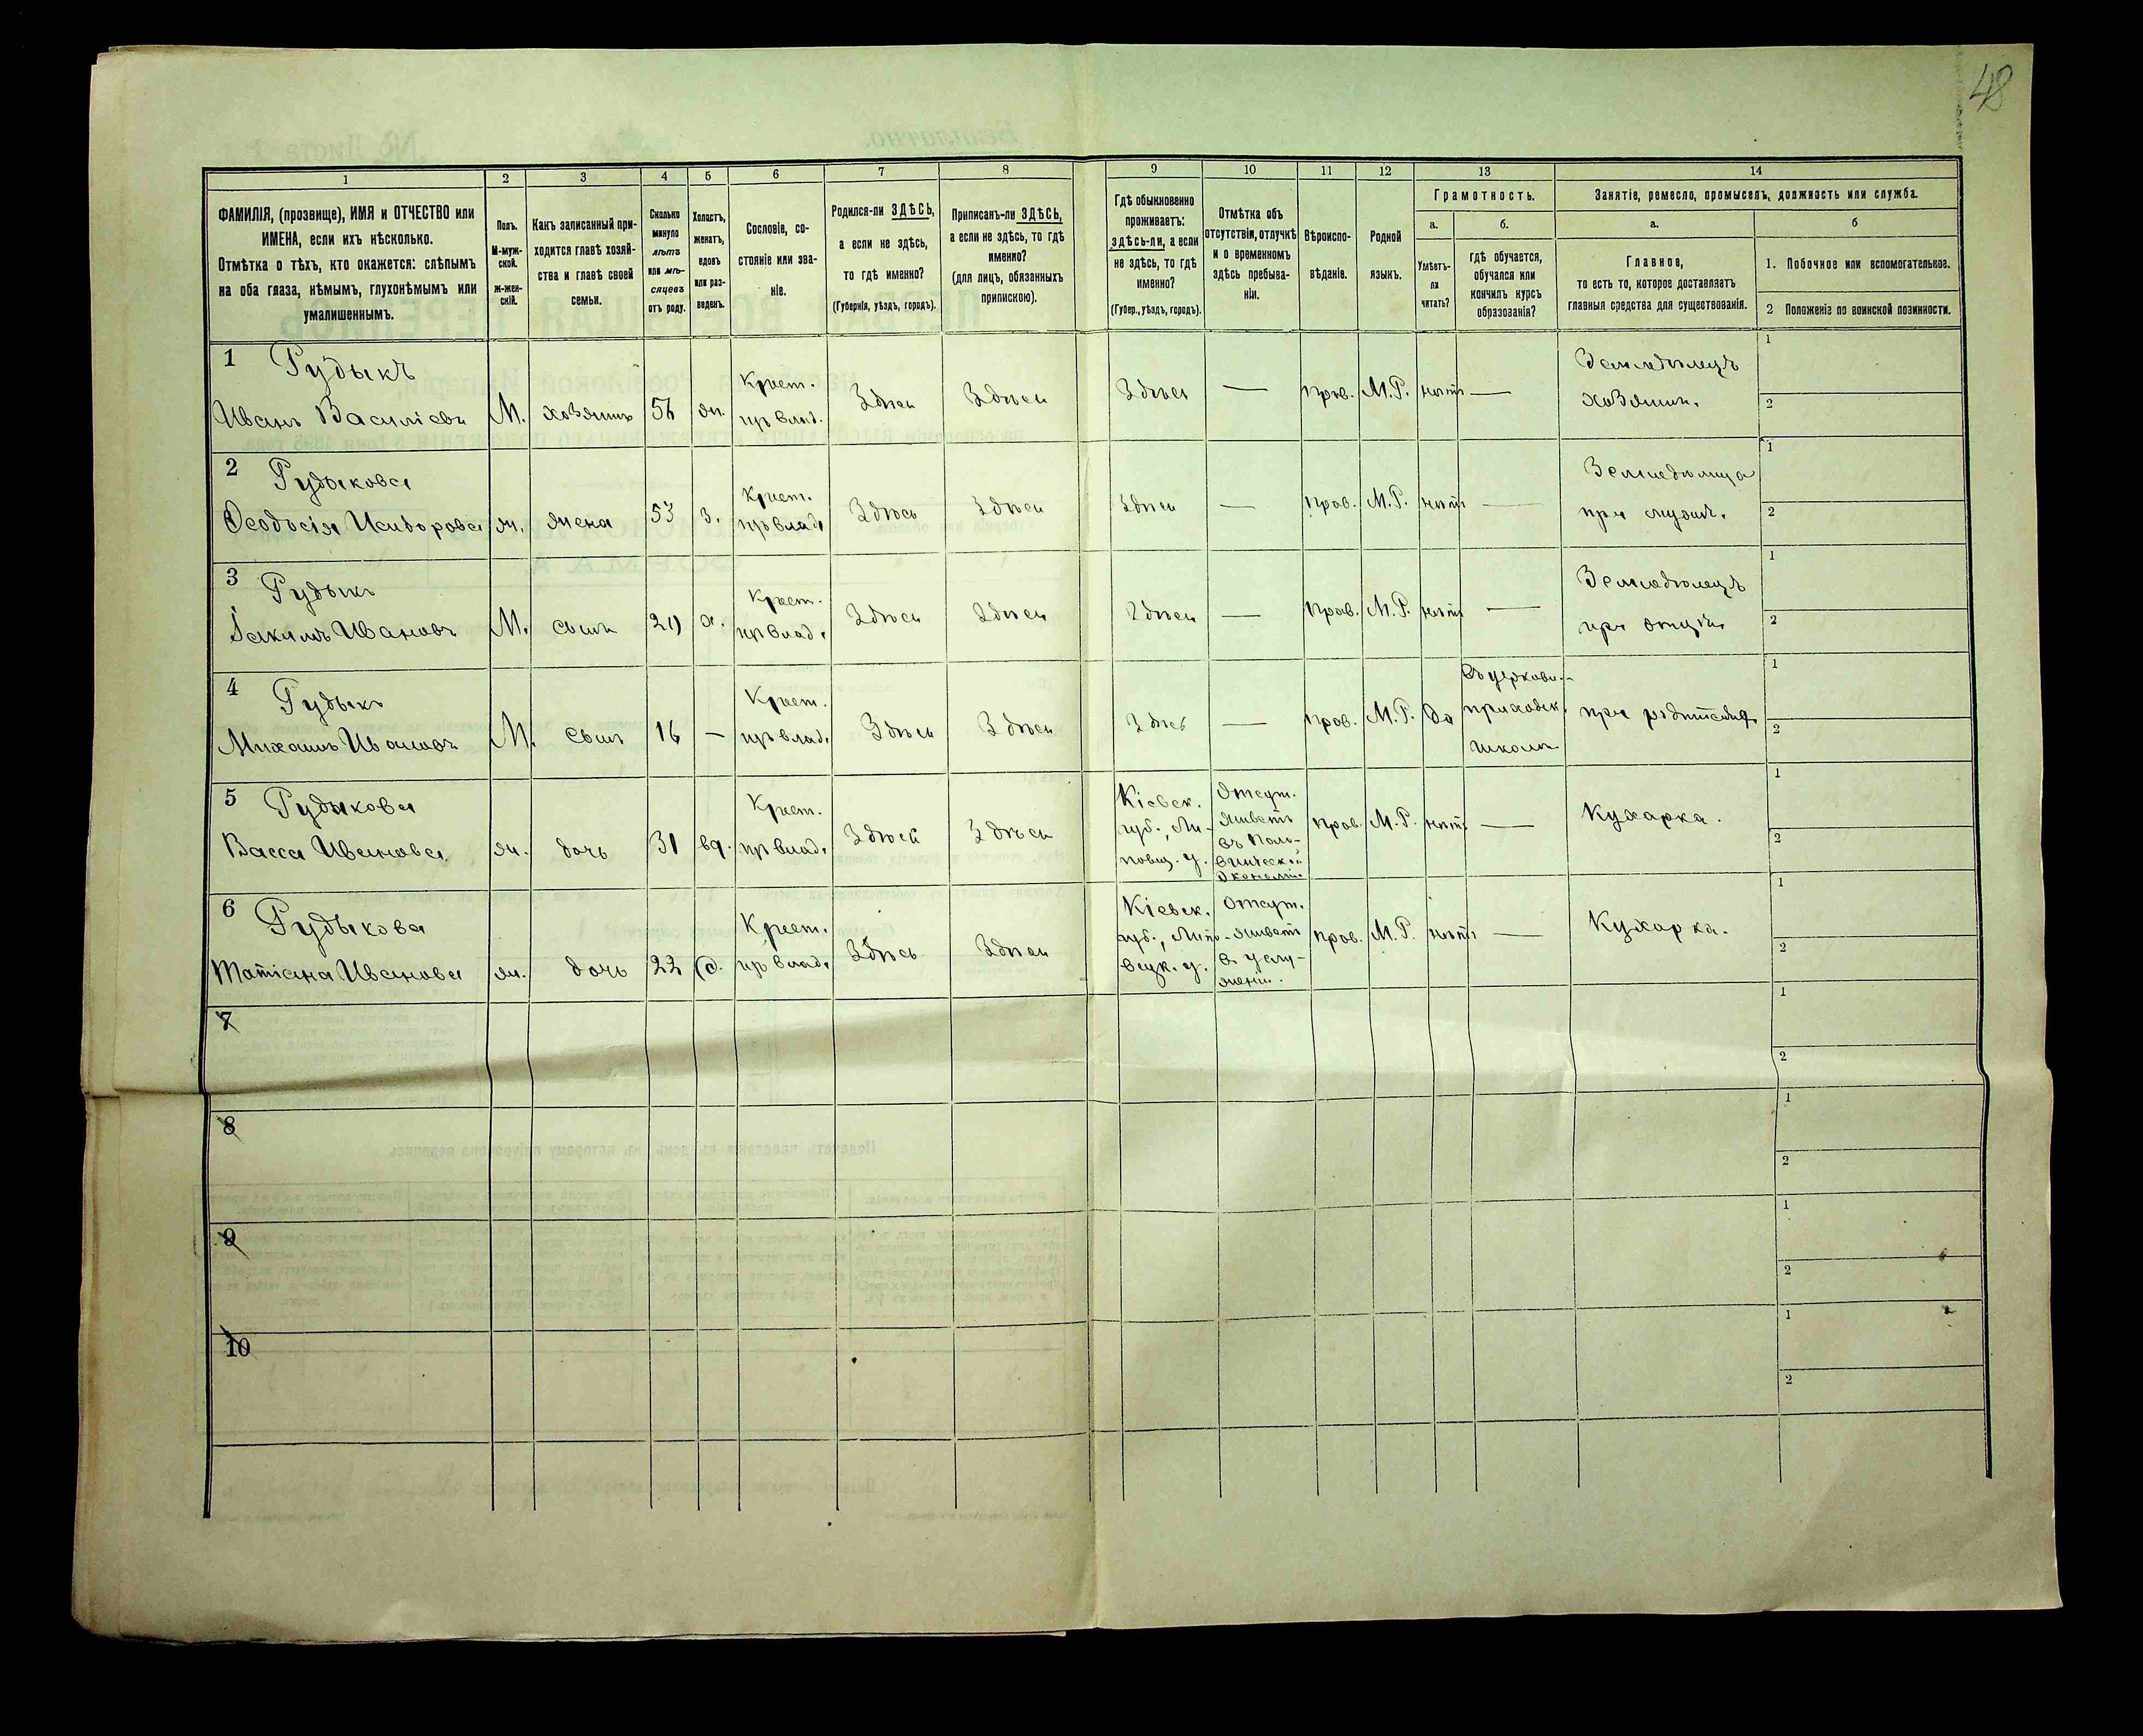 48
1 2 3 4 5 6 7 8 9 10 11 12 13 14
ФАМИЛІЯ, (прозвище), ИМЯ и ОТЧЕСТВО или
ИМЕНА, если ихъ нѣсколько.
Отмѣтка о тѣхъ, кто окажется: слѣпымъ
на оба глаза, нѣмымъ, глухонѣмымъ или
умалишеннымъ.
Полъ.
М-муж-
ской.
Ж-жен-
скій.
Какъ записанный при-
ходится главѣ хозяй-
ства и главѣ своей
семьи.
Сколько
минуло
лѣтъ
или мѣ-
сяцевъ
отъ роду.
Холостъ,
женатъ,
вдовъ
или раз-
веденъ.
Сословіе, со-
стояніе или зва-
ніе.
Родился-ли ЗДѢСЬ,
а если не здѣсь,
то гдѣ именно?
(Губернія, уѣздъ, городъ).
Приписанъ-ли ЗДѢСЬ,
а если не здѣсь, то гдѣ
именно?
(для лицъ, обязанныхъ
припискою).
Гдѣ обыкновенно
проживаетъ:
здѣсь-ли, а если
не здѣсь, то гдѣ
именно?
(Губер., уѣздъ, городъ).
Отмѣтка объ
отсутствіи, отлучкѣ
и о временномъ
здѣсь пребыва-
ніи.
Вѣроиспо-
вѣданіе.
Родной
языкъ.
Грамотность.
а.
Умѣетъ-
ли
читать?
б.
гдѣ обучается,
обучался или
кончилъ курсъ
образованія?
Занятіе, ремесло, промыселъ, должность или служба.
а.
Главное,
то есть то, которое доставляетъ
главныя средства для существованія.
б
1. Побочное или вспомогательное.
2 Положеніе по воинской повинности.
1 Рудыкъ
Иванъ Василіевъ М. хозяинъ 56 ж. Крест. пр влад. Здѣсь Здѣсь Здѣсь — прав. М.Р. нѣтъ — Земледѣлецъ хозяинъ. 1 2
2 Рудыкова
Ѳеодосія Исидорова ж. жена 53 з. Крест. пр влад. Здѣсь Здѣсь Здѣсь — прав. М.Р. нѣтъ — Земледѣлица при мужѣ. 1 2
3 Рудыкъ
Іакимъ Ивановъ М. сынъ х. Крест. пр влад. Здѣсь Здѣсь Здѣсь — прав. М.Р. нѣтъ — Земледѣлецъ при отцѣ. 1 2
4 Рудыкъ
Михаилъ Ивановъ М. сынъ 16 — Крест. пр влад. Здѣсь Здѣсь Здѣсь — прав. М.Р. да Въ церковн.- приходск. школѣ при 1 2
5 Рудыкова
Васса Иванова ж. дочь 31 вд. Крест. пр влад. Здѣсь Здѣсь Кіевск. губ., Ли- повец. у. Отсут. живетъ въ экономіи прав. М.Р. нѣтъ — Кухарка. 1 2
6 Рудыкова
Татіана Иванова ж. дочь 22 Крест. пр влад. Здѣсь Здѣсь Кіевск. губ., Липо- вецк. у. Отсут. живетъ в услу- женіи. прав. М.Р. нѣтъ — Кухарка. 1 2
7 1 2
8 1 2
9 1 2
10 1 2